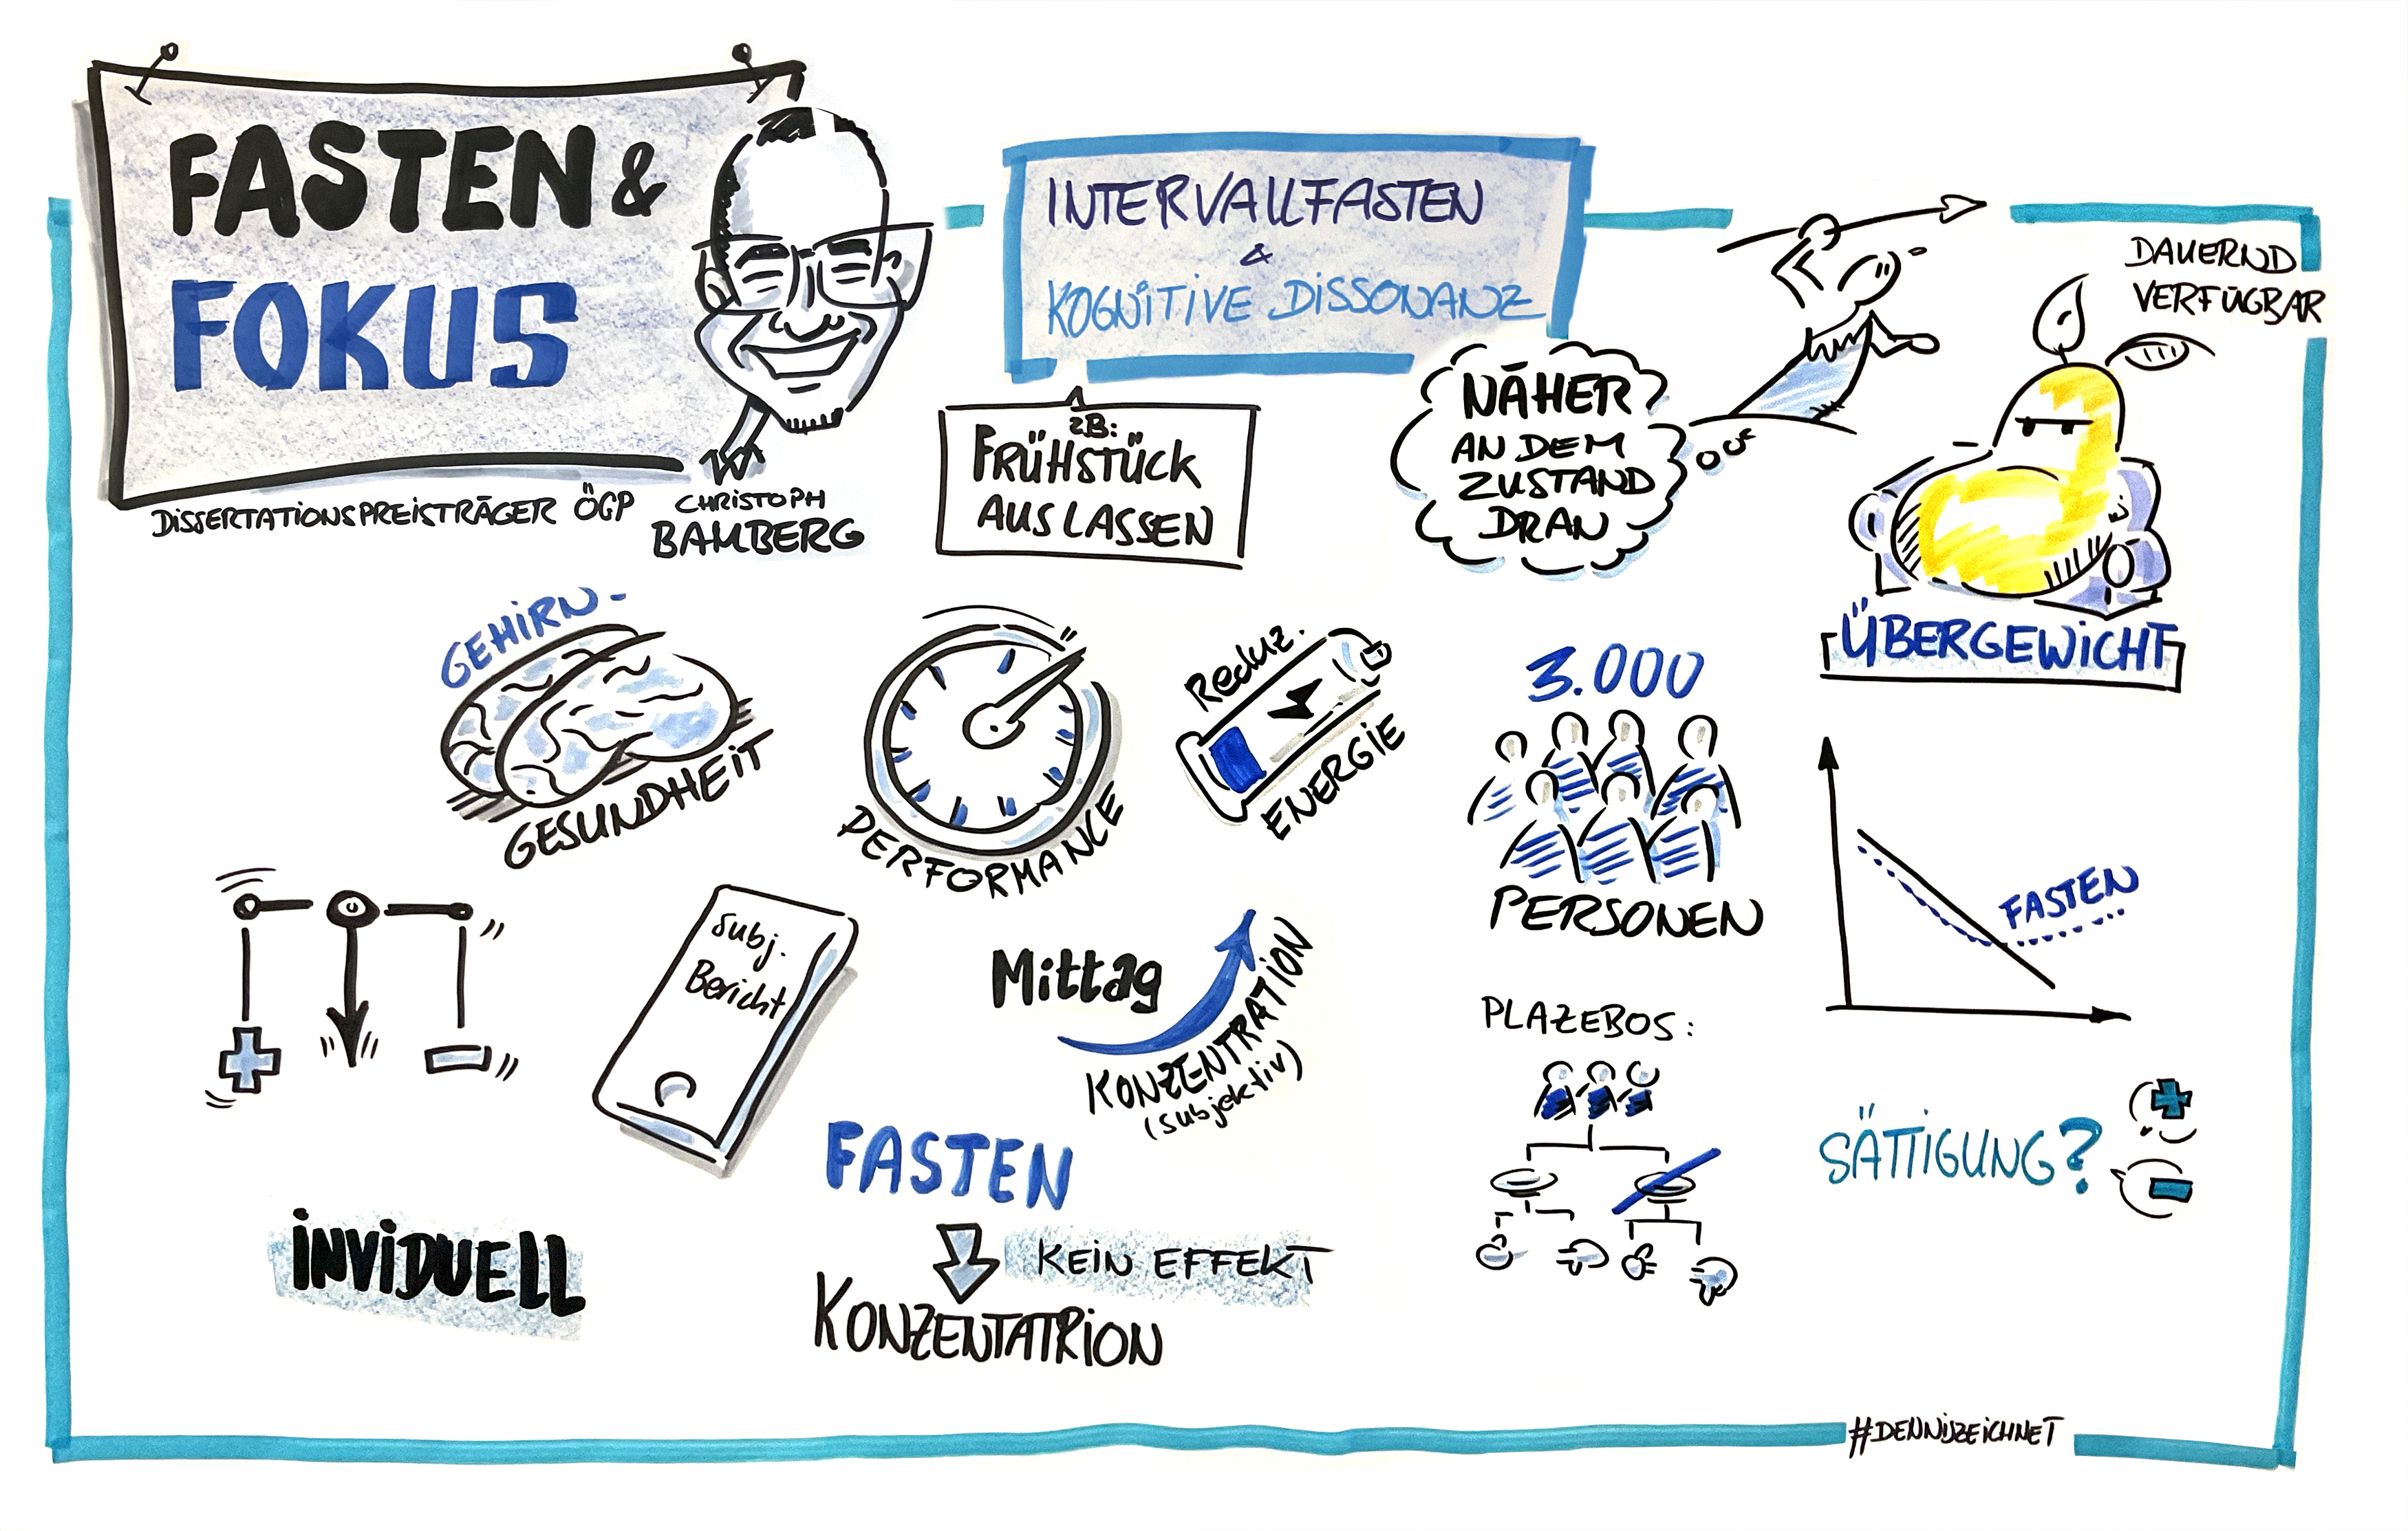 FASTEN &
FOKUS
DISSERTATIONSPREISTRÄGER ÖGP
CHRISTOPH
BAMBERG
INTERVALLFASTEN
&
KOGNITIVE DISSONANZ
zB:
FRÜHSTÜCK
AUSLASSEN
NÄHER
AN DEM
ZUSTAND
DRAN
DAUERND
VERFÜGBAR
ÜBERGEWICHT
GEHIRN-
GESUNDHEIT
PERFORMANCE
Reduz.
ENERGIE
3.000
PERSONEN
FASTEN
subj.
Bericht
Mittag
KONZENTRATION
(subjektiv)
PLAZEBOS:
SÄTTIGUNG?
INVIDUELL
FASTEN
KEIN EFFEKT
KONZENTATRION
#DENNISZEICHNET